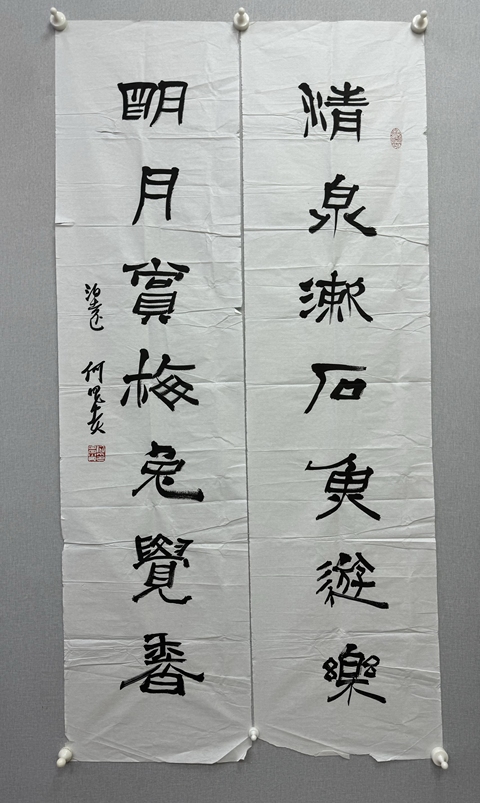 清泉漱石魚遊樂
明月賞梅兔覺香
何